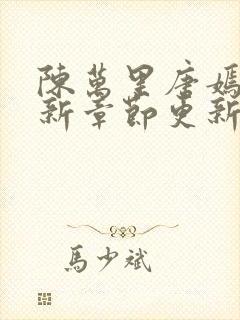 陳萬里唐嫣
新章節更新
馬少斌